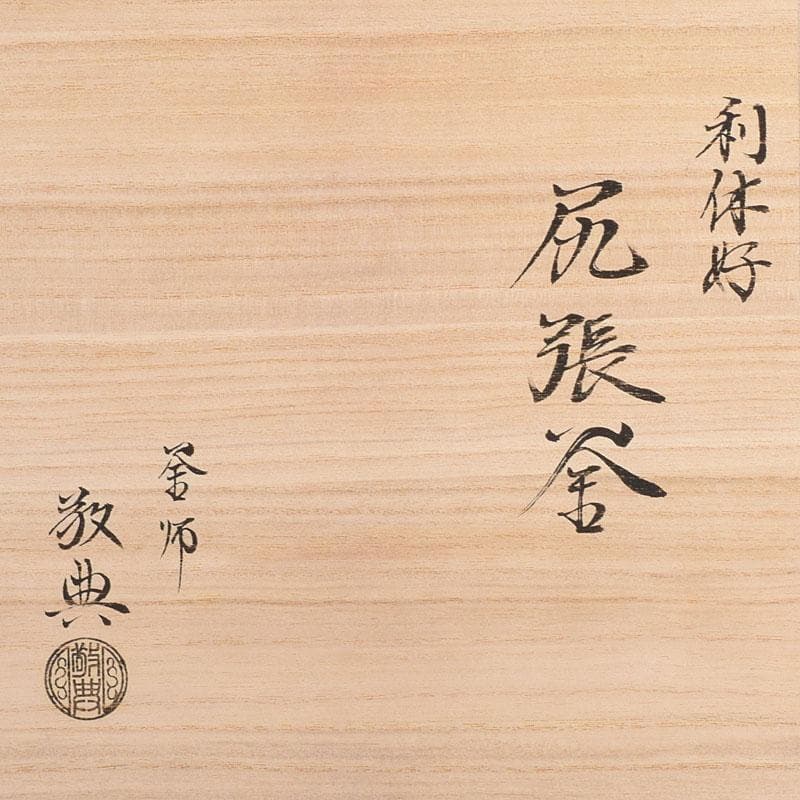 利休好
尻張釜
釜师
敬典
敬典